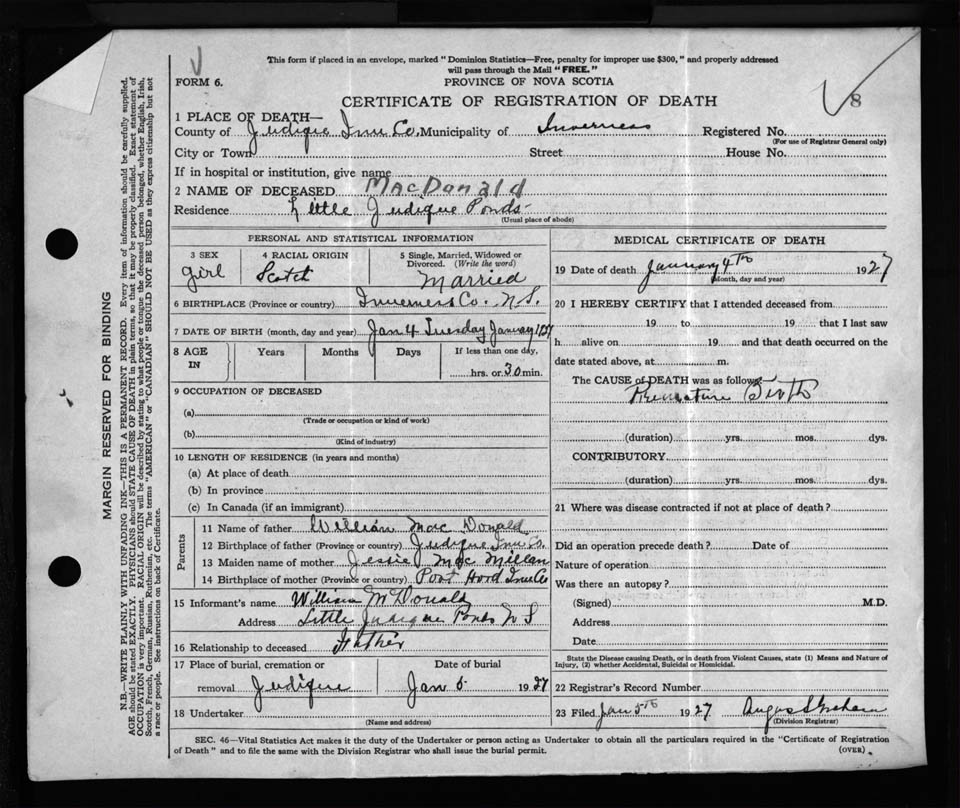 This form if placed in an envelope, marked "Dominion Statistics—Free, penalty for improper use $300," and properly addressed
will pass through the Mail "FREE."
FORM 6.
PROVINCE OF NOVA SCOTIA
8
CERTIFICATE OF REGISTRATION OF DEATH
1 PLACE OF DEATH—
County of Judique Inv Co. Municipality of Inverness Registered No.
(For use of Registrar General only)
City or Town Street House No.
If in hospital or institution, give name
2 NAME OF DECEASED MacDonald
Residence Little Judique Ponds
(Usual place of abode)
PERSONAL AND STATISTICAL INFORMATION
3 SEX 4 RACIAL ORIGIN 5 Single, Married, Widowed or
Divorced. (Write the word)
girl Scotch Married
6 BIRTHPLACE (Province or country) Inverness Co. N.S.
7 DATE OF BIRTH (month, day and year) Jan 4 Tuesday January 1927
8 AGE IN Years Months Days If less than one day,
hrs. or 30 min.
9 OCCUPATION OF DECEASED
(a)
(Trade or occupation or kind of work)
(b)
(Kind of industry)
10 LENGTH OF RESIDENCE (in years and months)
(a) At place of death
(b) In province
(c) In Canada (if an immigrant)
Parents
11 Name of father William Mac Donald
12 Birthplace of father (Province or country) Judique Inv Co.
13 Maiden name of mother Jessie Mac Millan
14 Birthplace of mother (Province or country) Port Hood Inv Co
15 Informant's name William McDonald
Address Little Judique Ponds N S
16 Relationship to deceased Father
17 Place of burial, cremation or Date of burial
removal Judique Jan 5 1927
18 Undertaker
(Name and address)
MEDICAL CERTIFICATE OF DEATH
19 Date of death January 4th 1927
(Month, day and year)
20 I HEREBY CERTIFY that I attended deceased from
19 to 19 that I last saw
h alive on 19 and that death occurred on the
date stated above, at m.
The CAUSE of DEATH was as follows:—
Premature Birth
(duration) yrs. mos. dys.
CONTRIBUTORY
(duration) yrs. mos. dys.
21 Where was disease contracted if not at place of death?
Did an operation precede death? Date of
Nature of operation
Was there an autopsy?
(Signed) M.D.
Address
Date
State the Disease causing Death, or in death from Violent Causes, state (1) Means and Nature of
Injury, (2) whether Accidental, Suicidal or Homicidal.
22 Registrar's Record Number
23 Filed Jan 5th 1927 Angus Graham
(Division Registrar)
SEC. 46—Vital Statistics Act makes it the duty of the Undertaker or person acting as Undertaker to obtain all the particulars required in the "Certificate of Registration
of Death" and to file the same with the Division Registrar who shall issue the burial permit. (OVER)
MARGIN RESERVED FOR BINDING
N.B.—WRITE PLAINLY WITH UNFADING INK—THIS IS A PERMANENT RECORD. Every item of information should be carefully supplied.
AGE should be stated EXACTLY. PHYSICIANS should STATE CAUSE OF DEATH in plain terms, so that it may be properly classified. Exact statement of
OCCUPATION is very important. RACIAL ORIGIN will be described by stating to what people or tongue the deceased person belonged, whether English, Irish,
Scotch, French, German, Russian, Ruthenian, etc. The terms "AMERICAN" or "CANADIAN" SHOULD NOT BE USED as they express citizenship but not
a race or people. See instructions on back of Certificate.